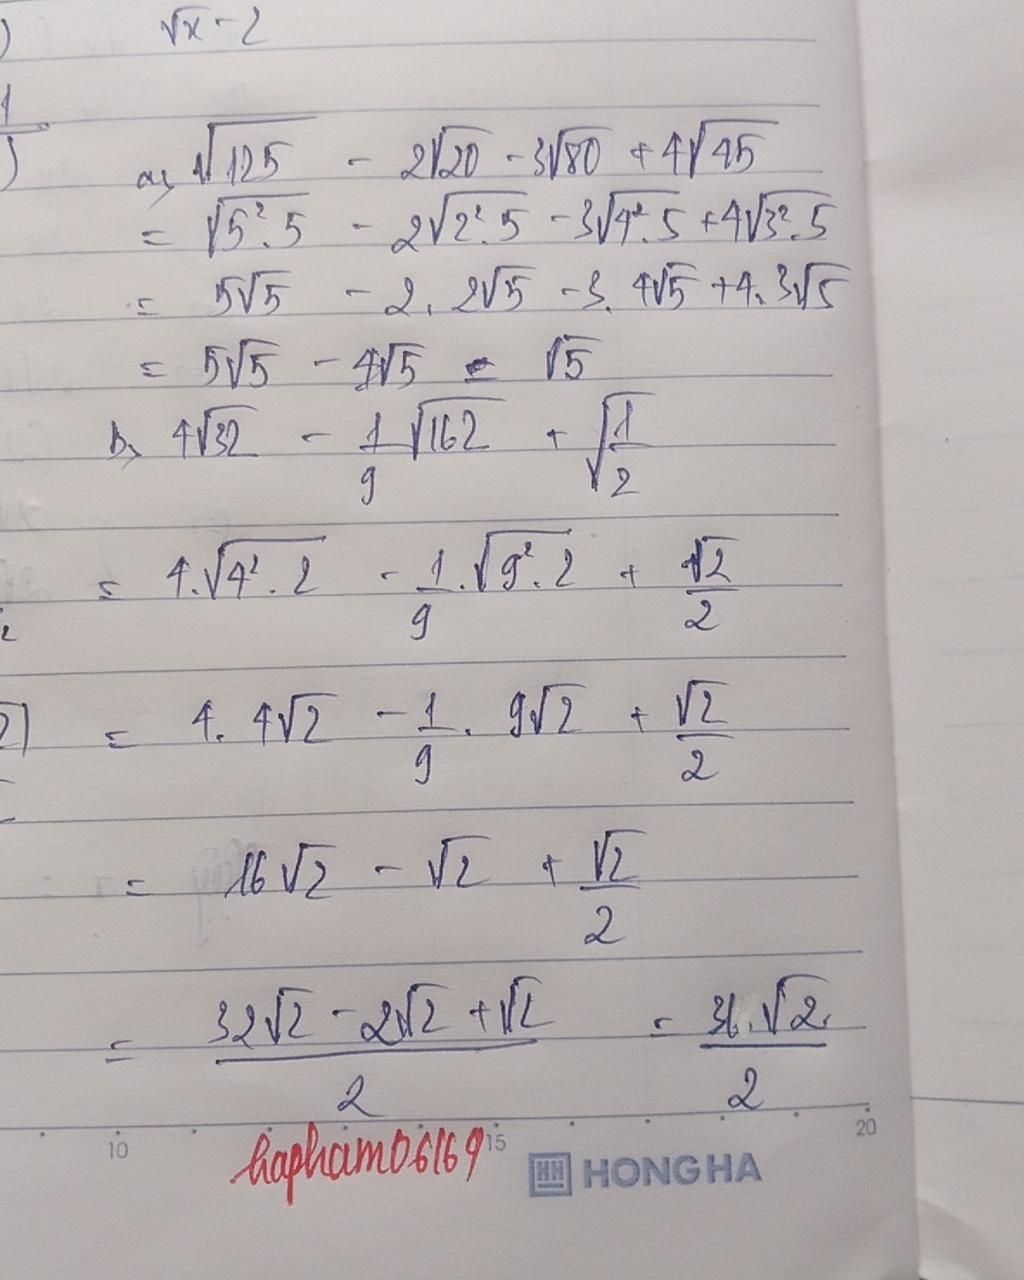 ) √x - 2
1
)
a, √125 - 2√20 - 3√80 + 4√45
= √5².5 - 2√2².5 - 3√4².5 + 4√3².5
= 5√5 - 2. 2√5 - 3. 4√5 + 4. 3√5
= 5√5 - 4√5 = √5
b, 4√32 - 1/9 √162 + √1/2
= 4.√4².2 - 1/9.√9².2 + √2/2
2
= 4. 4√2 - 1/9. 9√2 + √2/2
2
= 16√2 - √2 + √2/2
= (32√2 - 2√2 + √2)/2 = 31.√2/2
10 15 20
hapham06169
HH HONG HA